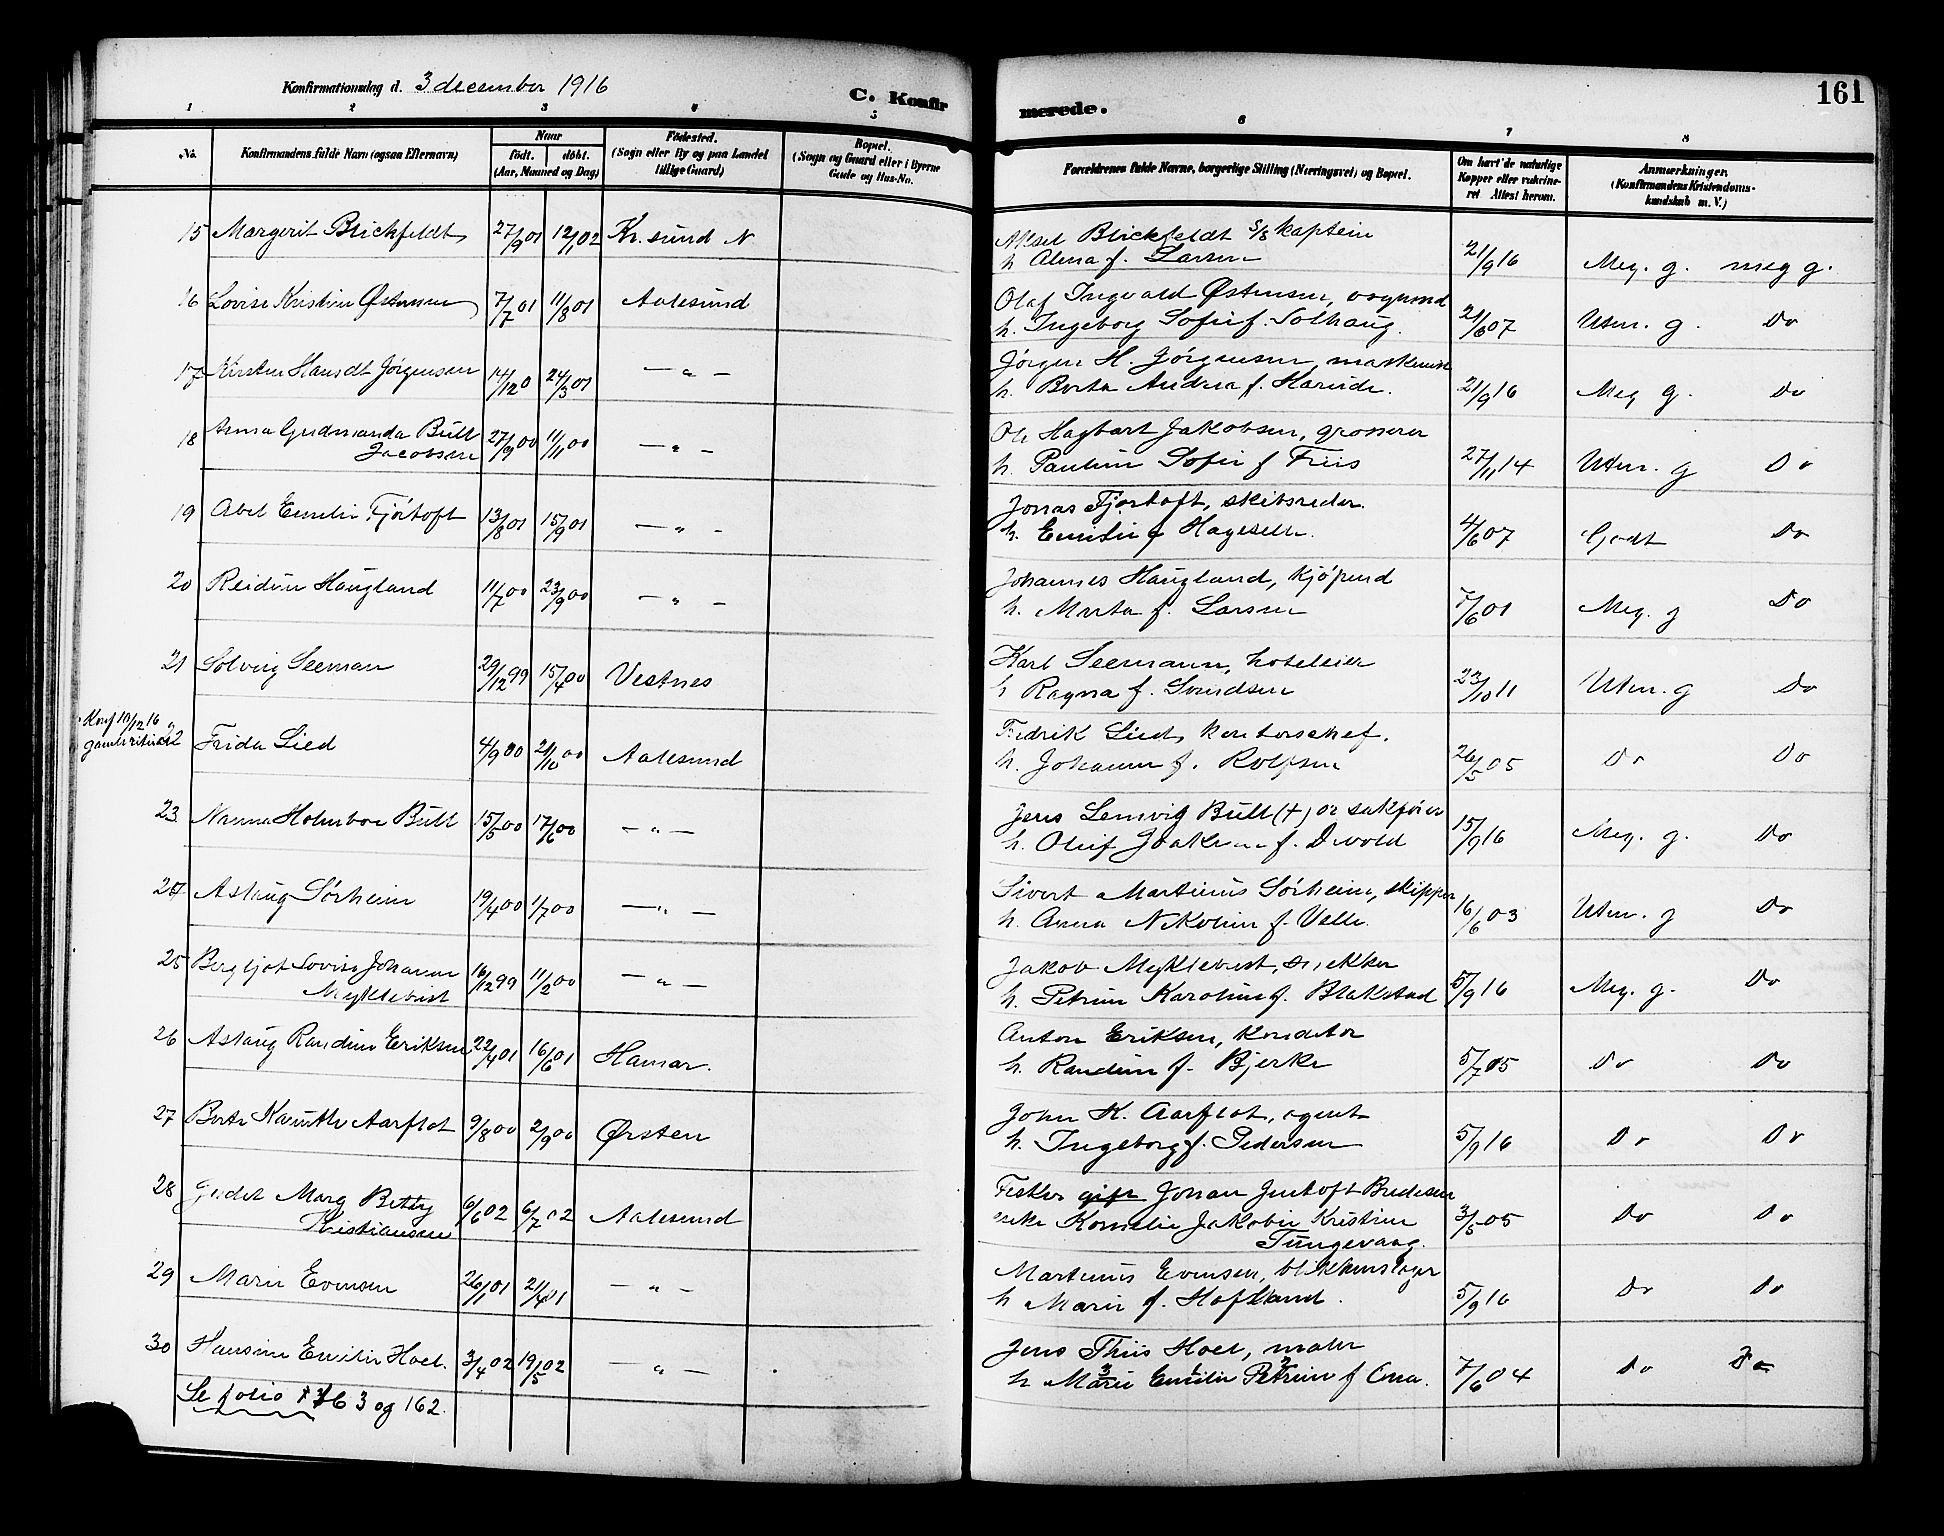 Konfirmationsdag d. 3 december 1916
C. Konfir
merede.
161
1 2 3 4 5 6 7 8
No.
Konfirmandens fulde Navn (ogsaa Efternavn)
Naar
födt. döbt.
(Aar, Maaned og Dag)
Födested.
(Sogn eller By og paa Landet tillige Gaard)
Bopæl.
(Sogn og Gaard eller i Byerne Gade og Hus-No.
Forældrenes fulde Navne, borgerlige Stilling (Næringsvei) og Bopæl.
Om havt de naturlige Kopper eller vakcineret Attest herom.
Anmærkninger.
(Konfirmandens Kristendomskundskab m. V.)
15 Margerit Blickfeldt 27/9 01 12/1 02 Kr.sund N
Aksel Blickfeldt s/s kaptein
h Alma f. Larsen 21/9 16 Meg. g. meg g.
16 Lovise Kristine Østensen 7/7 01 11/8 01 Aalesund
Olaf Ingvald Østensen, vognmd
h. Ingeborg Sofie f. Solhaug. 21/6 07 Utm. g. Do
17 Kirsten Hansdt Jørgensen 14/12 0 24/3 01 — " —
Jørgen H. Jørgensen, maskinist
h. Berta Andrea f. Hareide. 21/9 16 Meg g. Do
18 Anna Gudmanda Bull
Jacobsen 27/9 00 11/11 00 — " —
Ole Hagbart Jakobsen, grosserer
h. Pauline Sofie f Friis 27/11 14 Utm. g Do
19 Abel Emilie Fjørtoft 13/8 01 15/9 01 — " —
Jonas Fjørtoft, skibsreder.
h. Emilie f Hagesen. 4/6 07 Godt Do
20 Reidun Haugland 11/7 00 23/9 00 — " —
Johannes Haugland, kjøpmd
h. Marta f. Larsen 7/6 01 Meg. g Do
21 Solveig Seeman 29/12 99 15/4 00 Vestnes
Karl Seemann, hoteleier
h Ragna f. Svendsen 23/10 11 Utm. g Do
Konf 10/12 16
gamle ritual
22 Frida Lied 4/9 00 21/10 00 Aalesund
Fredrik Lied, kontorschef.
h. Johanne f. Rolfsen 26/5 05 Do Do
23 Nanna Holmboe Bull 15/5 00 17/6 00 — " —
Jens Lemvig Bull (+) or sakfører
h. Oluf Joakime f. Devold 15/9 16 Meg. g. Do
24 Aslaug Sørheim 19/4 00 1/7 00 — " —
Sivert Martinus Sørheim, skipper
h. Anna Nikoline f. Valle. 16/6 03 Utm. g Do
25 Bergljot Lovise Johanne
Myklebust 16/12 99 11/2 00 — " —
Jakob Myklebust, snekker
h. Petrine Karoline f. Blakstad 5/9 16 Meg. g. Do
26 Aslaug Randine Eriksen 22/4 01 16/6 01 Hamar.
Anton Eriksen, Konditor
h. Randine f. Bjerke 5/7 05 Do Do
27 Berte Kamille Aarflot 9/8 00 2/9 00 Ørsten
John K. Aarflot, agent
h. Ingeborg f. Pedersen 5/9 16 Do Do
28 Gudet Marg Betty
Kristiansen 6/6 02 6/7 02 Aalesund
Fisker gift Johan Jentoft Bredesen
enke Kornelie Jakobie Kristine
Tungevaag. 3/5 05 Do Do
29 Marie Evensen 26/1 01 21/4 01 — " —
Martinus Evensen, blikkenslager
h Marie f. Hofland. 5/9 16 Do Do
30 Hansine Emilie Hoel. 3/4 02 19/5 02 — " —
Jens Thiis Hoel, maler
h Marie Emilie Petrine f Oma. 7/6 04 Do Do
Se folio 163 og 162.